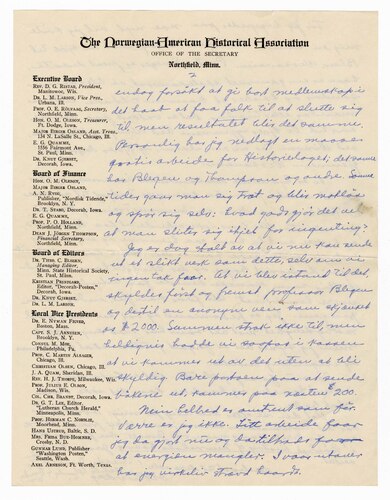 The Norwegian-American Historical Association
OFFICE OF THE SECRETARY
Northfield, Minn.
2
Executive Board
REV. D. G. RISTAD, President,
Manitowoc, Wis.
DR. L. M. LARSON, Vice Pres.,
Urbana, Ill.
PROF. O. E. RÖLVAAG, Secretary,
Northfield, Minn.
HON. O. M. OLESON, Treasurer,
Ft. Dodge, Iowa
MAJOR BIRGER OSLAND, Asst. Treas.
134 N. LaSalle St., Chicago, Ill.
E. G. QUAMME,
Fairmount Ave.
St. Paul, Minn.
DR. KNUT GJERSET,
Decorah, Iowa
Board of Finance
HON. O. M. OLESON,
MAJOR BIRGER OSLAND,
A. N. RYGG,
Publisher, "Nordisk Tidende,"
Brooklyn, N. Y.
DR. T. STABO, Decorah, Iowa
E. G. QUAMME,
PROF. P. O. HOLLAND,
DEAN J. JÖRGEN THOMPSON,
Financial Secretary,
Northfield, Minn.
Board of Editors
DR. THEO. C. BLEGEN,
Managing Editor,
Minn. State Historical Society,
St. Paul, Minn.
KRISTIAN PRESTGARD,
Editor, "Decorah-Posten,"
Decorah, Iowa
DR. KNUT GJERSET,
DR. L. M. LARSON,
Local Vice Presidents
Boston, Mass.
CAPT. S. J. ARNESEN,
Brooklyn, N. Y.
CONSUL M. MOE,
Philadelphia, Pa.
PROF. C. MARTIN ALSAGER,
Chicago, Ill.
CHRISTIAN OLSEN, Chicago, Ill.
J. A. QUAM, Sheridan, Ill.
REV. H. J. THORPE, Milwaukee, Wis.
PROF. JULIUS E. OLSON,
Madison, Wis.
COL. CHR. BRANDT, Decorah, Iowa
DR. G. T. LEE, Editor,
"Lutheran Herald,"
Minneapolis, Minn.
PROF. HERMAN C. NORDLIE,
Moorhead, Minn.
HANS USTRUD, Baltic, S. D.
Crosby, N. D.
GUNNAR LUND, Publisher
"Washington Posten,"
Seattle, Wash.
AXEL ARNESON, Ft. Worth, Texas.
endog forsøkt at gi bort medlemskap i
det haab at faa folk til at slutte sig
til men resultatet blir det samme.
Personlig har jeg nedlagt en masse
gratis arbeide for Historielaget; det samme
har Blegen og Thompson og andre. Somme
tider gaar man sig træt og blir motløs
og spør sig selv: hvad godt gjør det vel
at man sliter sig ihjel for ingenting?
Jeg er dog stolt av at vi nu kan sende
ut et slikt verk som dette, selv om vi
ingen tak faar. At vi blev istand til det,
skyldes først og fremst professor Blegen
og dertil en anonym ven som skjænket
os $2000. Summen strak ikke til, men
heldigvis hadde vi saapas i kassen
at vi kommer ut av det uten at bli
skyldig. Bare portoen paa at sende
bøkene ut kommer paa næsten $200.
Min helbred er omtrent som før.
Værre er jeg ikke. Litt arbeide faar
jeg da gjort nu og da tiltrods for
at energien mangler. I vaar utover
har jeg virkelig stræved haardt.